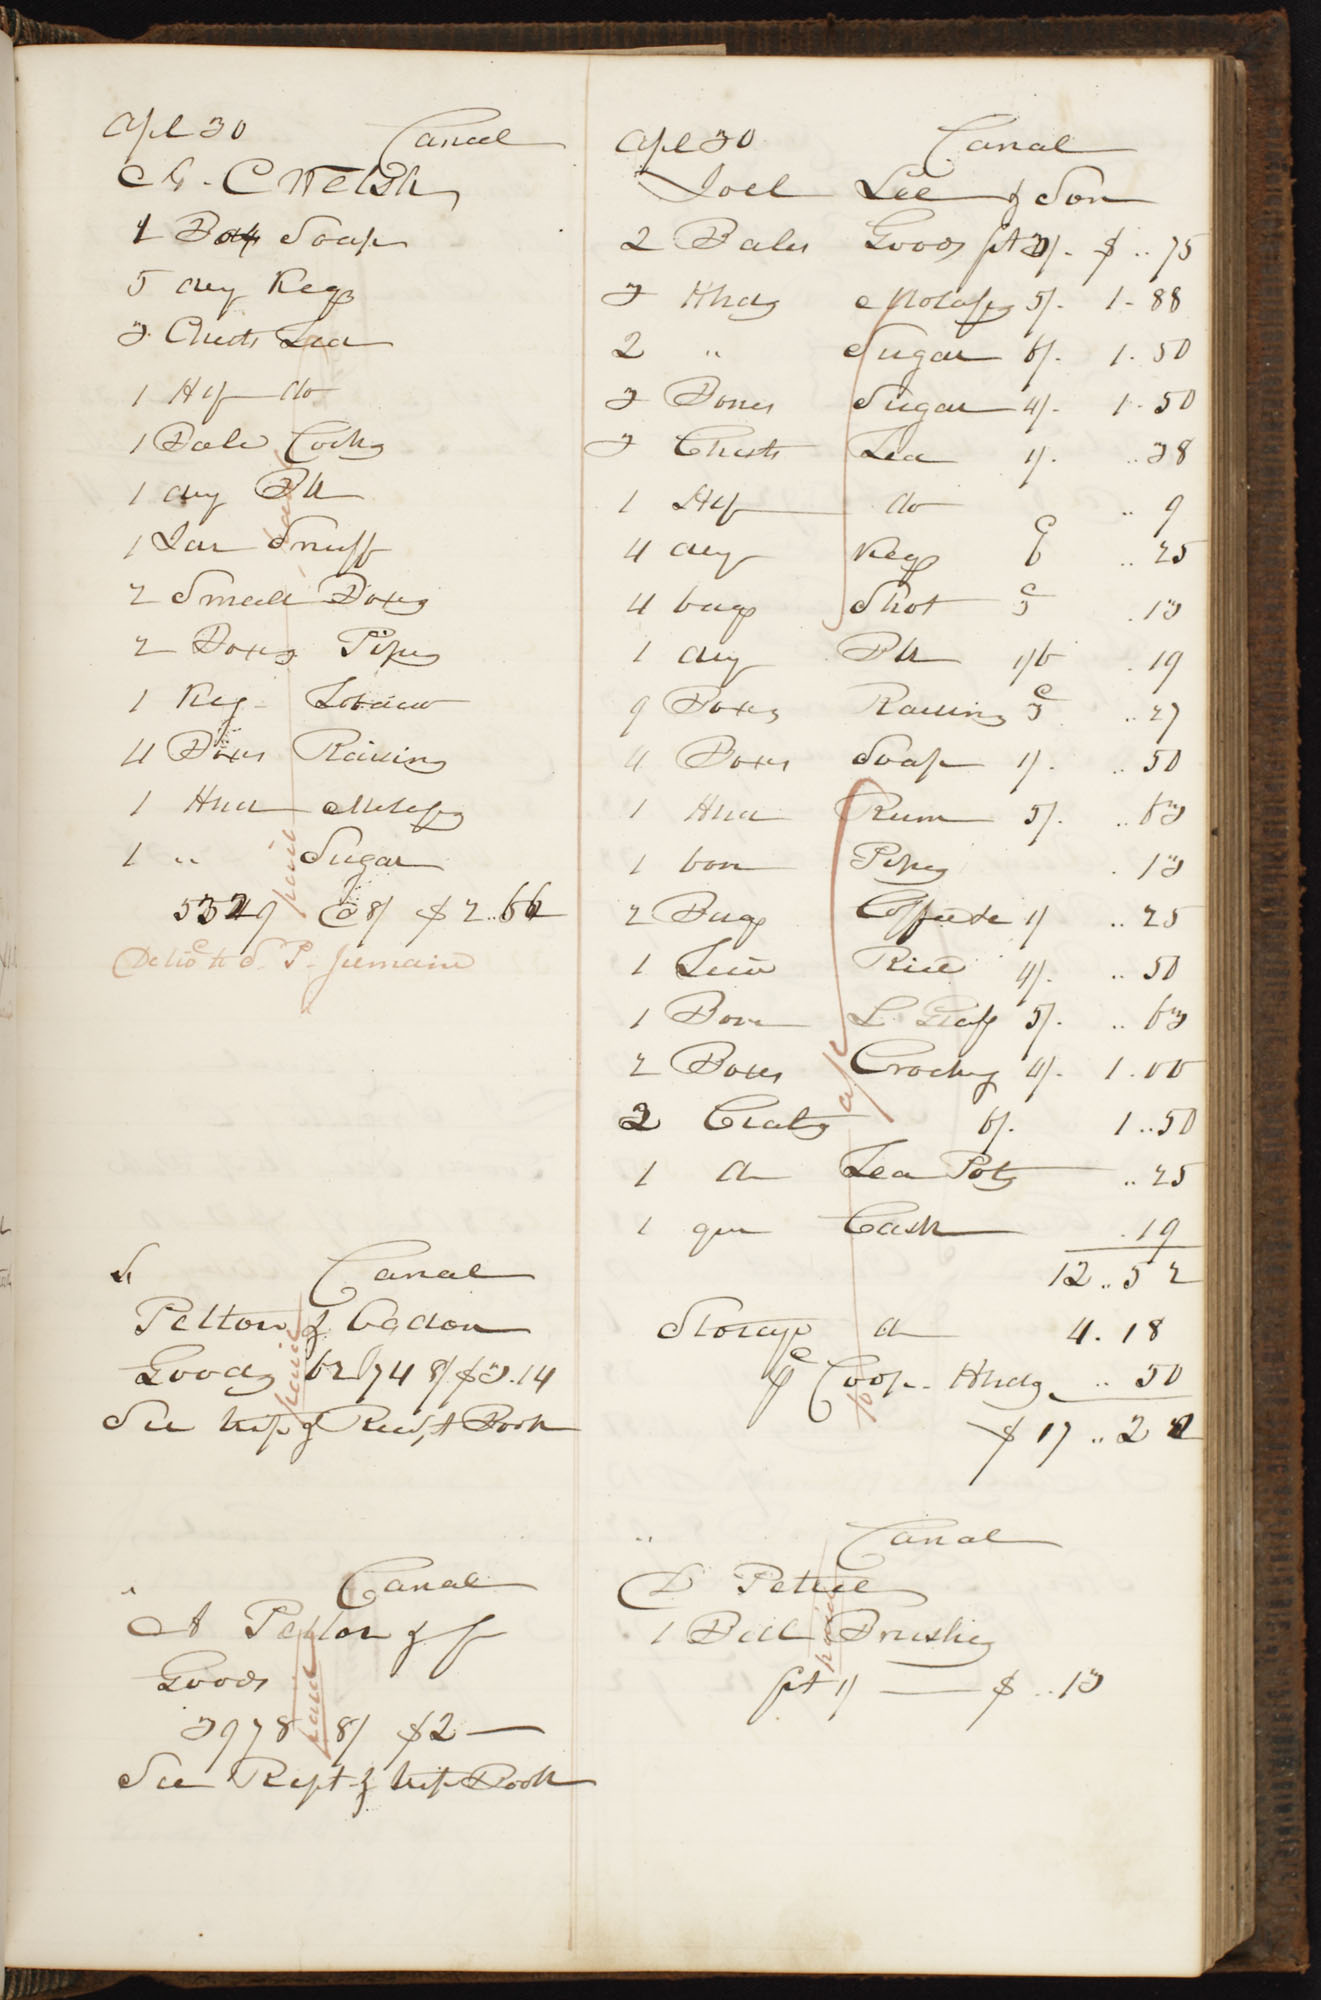 Apl 30 Canal
C Welsh
1 Box Soap
5 dry Kegs
3 Chests Tea
1 Hlf do
1 Bale Corks
1 dry Bbl
1 Jar Snuff
2 Small Boxes
2 Boxes Pipes
1 Keg Tobacco
4 Boxes Raisins
1 Hhd Molass
1 " Sugar
5329 @ 8/ $2..66
Paid
S. P. Jermain
Canal
Pelton &
Goods 6274 8/ $3.14
See Ship & Receipt Book
paid
" Canal
A Pelton &
Goods
3978 8/ $2—
See Rept & Ship Book
paid
Apl 30 Canal
Joel Lee & Son
2 Bales Goods frt 3/. $..75
3 Hhds Molass 5/. 1-88
2 " Sugar 6/. 1.50
3 Boxes Sugar 4/. 1.50
3 Chests Tea 1/. ..38
1 Hlf do ..9
4 dry Kegs 6c ..25
4 bags Shot 3c .13
1 dry Bbl 1/6 .19
9 Boxes Raisins 3c ..27
4 Boxes Soap 1/. ..50
1 Hhd Rum 5/. ..63
1 box Pipes .13
2 Bags Coffee 1/ ..25
1 Rice 4/. ..50
1 Box L Glass 5/. ..63
2 Boxes Crockery 4/. 1.00
2 Crates 6/. 1..50
1 do Tea Pots ..25
1 qr Cask .19
12..52
Storage do 4.18
Coop. Hhds ..50
$17..22
" Canal
D Petrie
1 Bdl Brushes
frt 1/ — $..13
paid